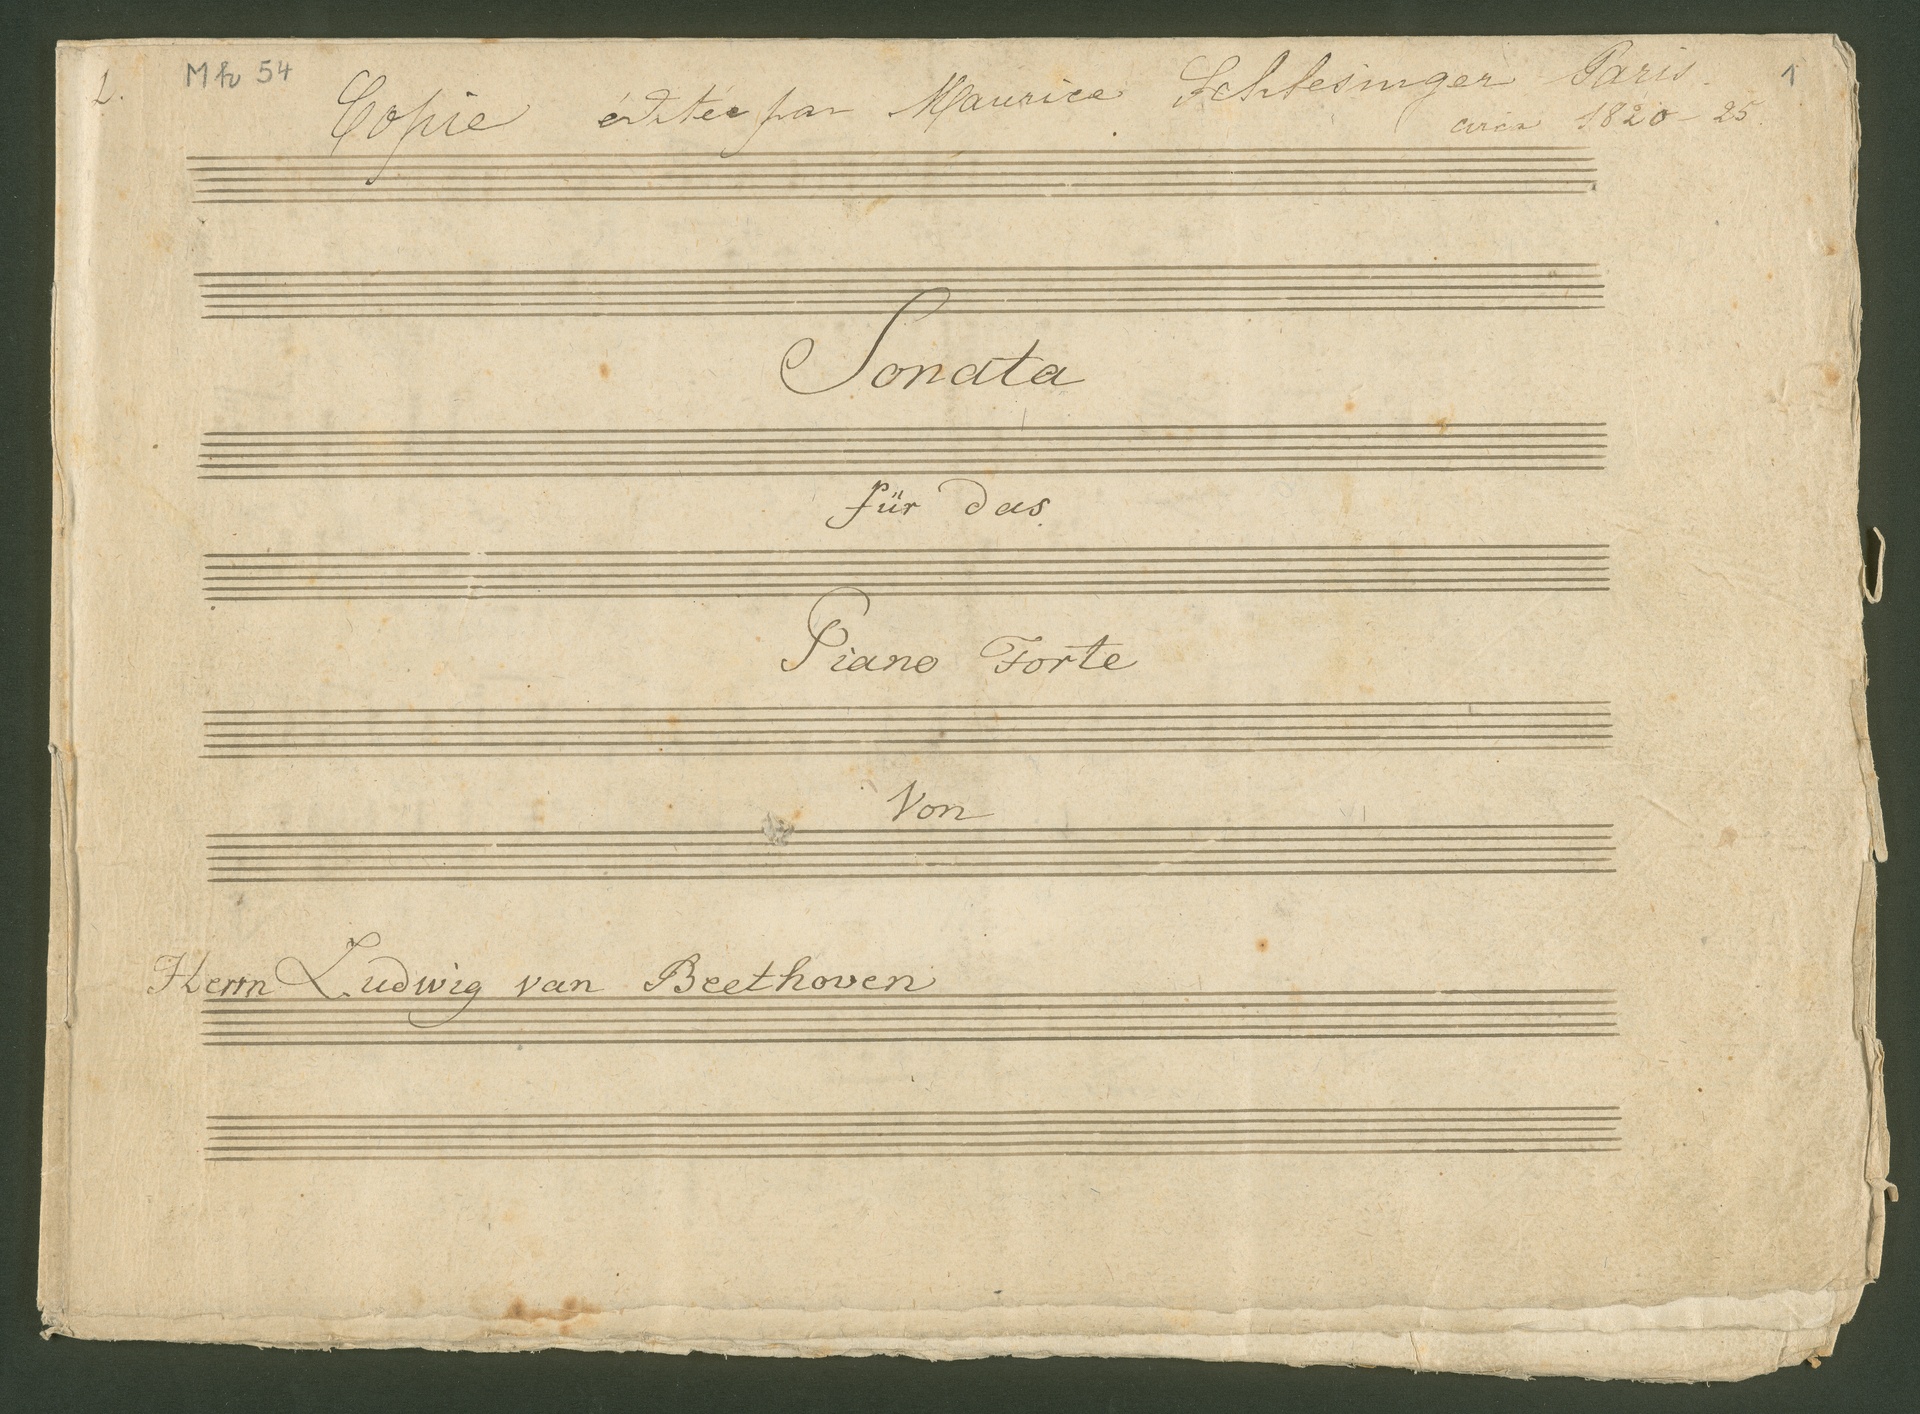 1.
Mh 54
Copie éditée par Maurice Schlesinger Paris.
1
circa 1820-25.
Sonata
für das
Piano Forte
Von
Herrn Ludwig van Beethoven